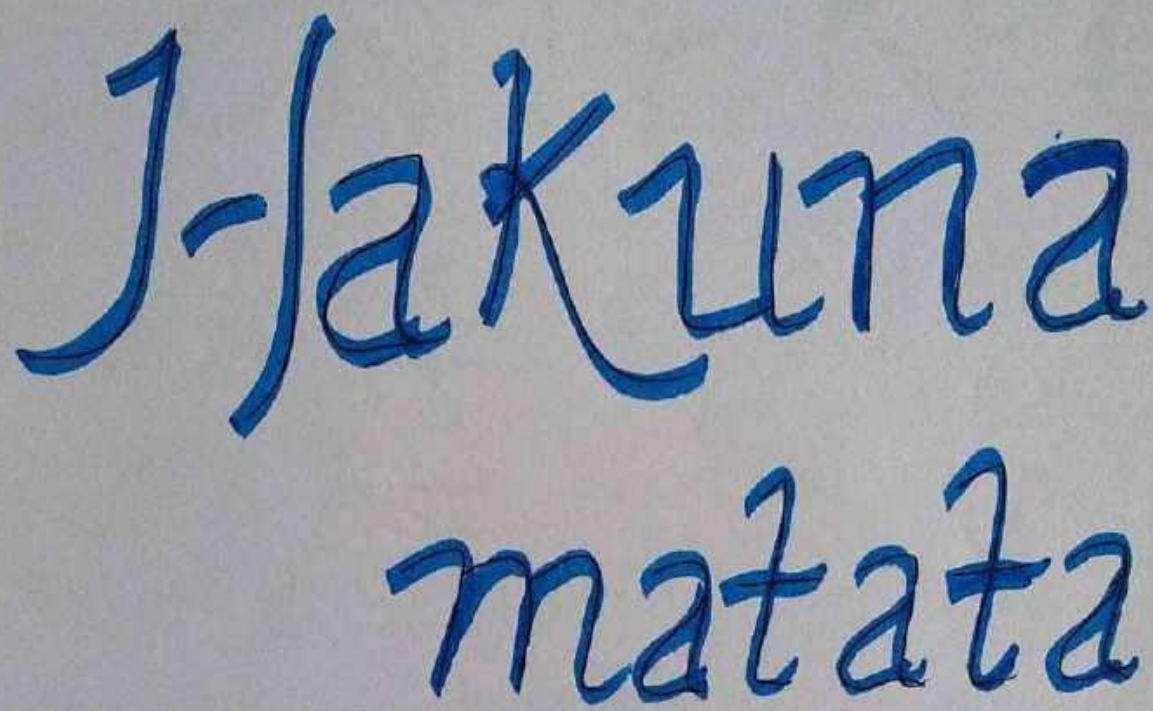 Hakuna
matata